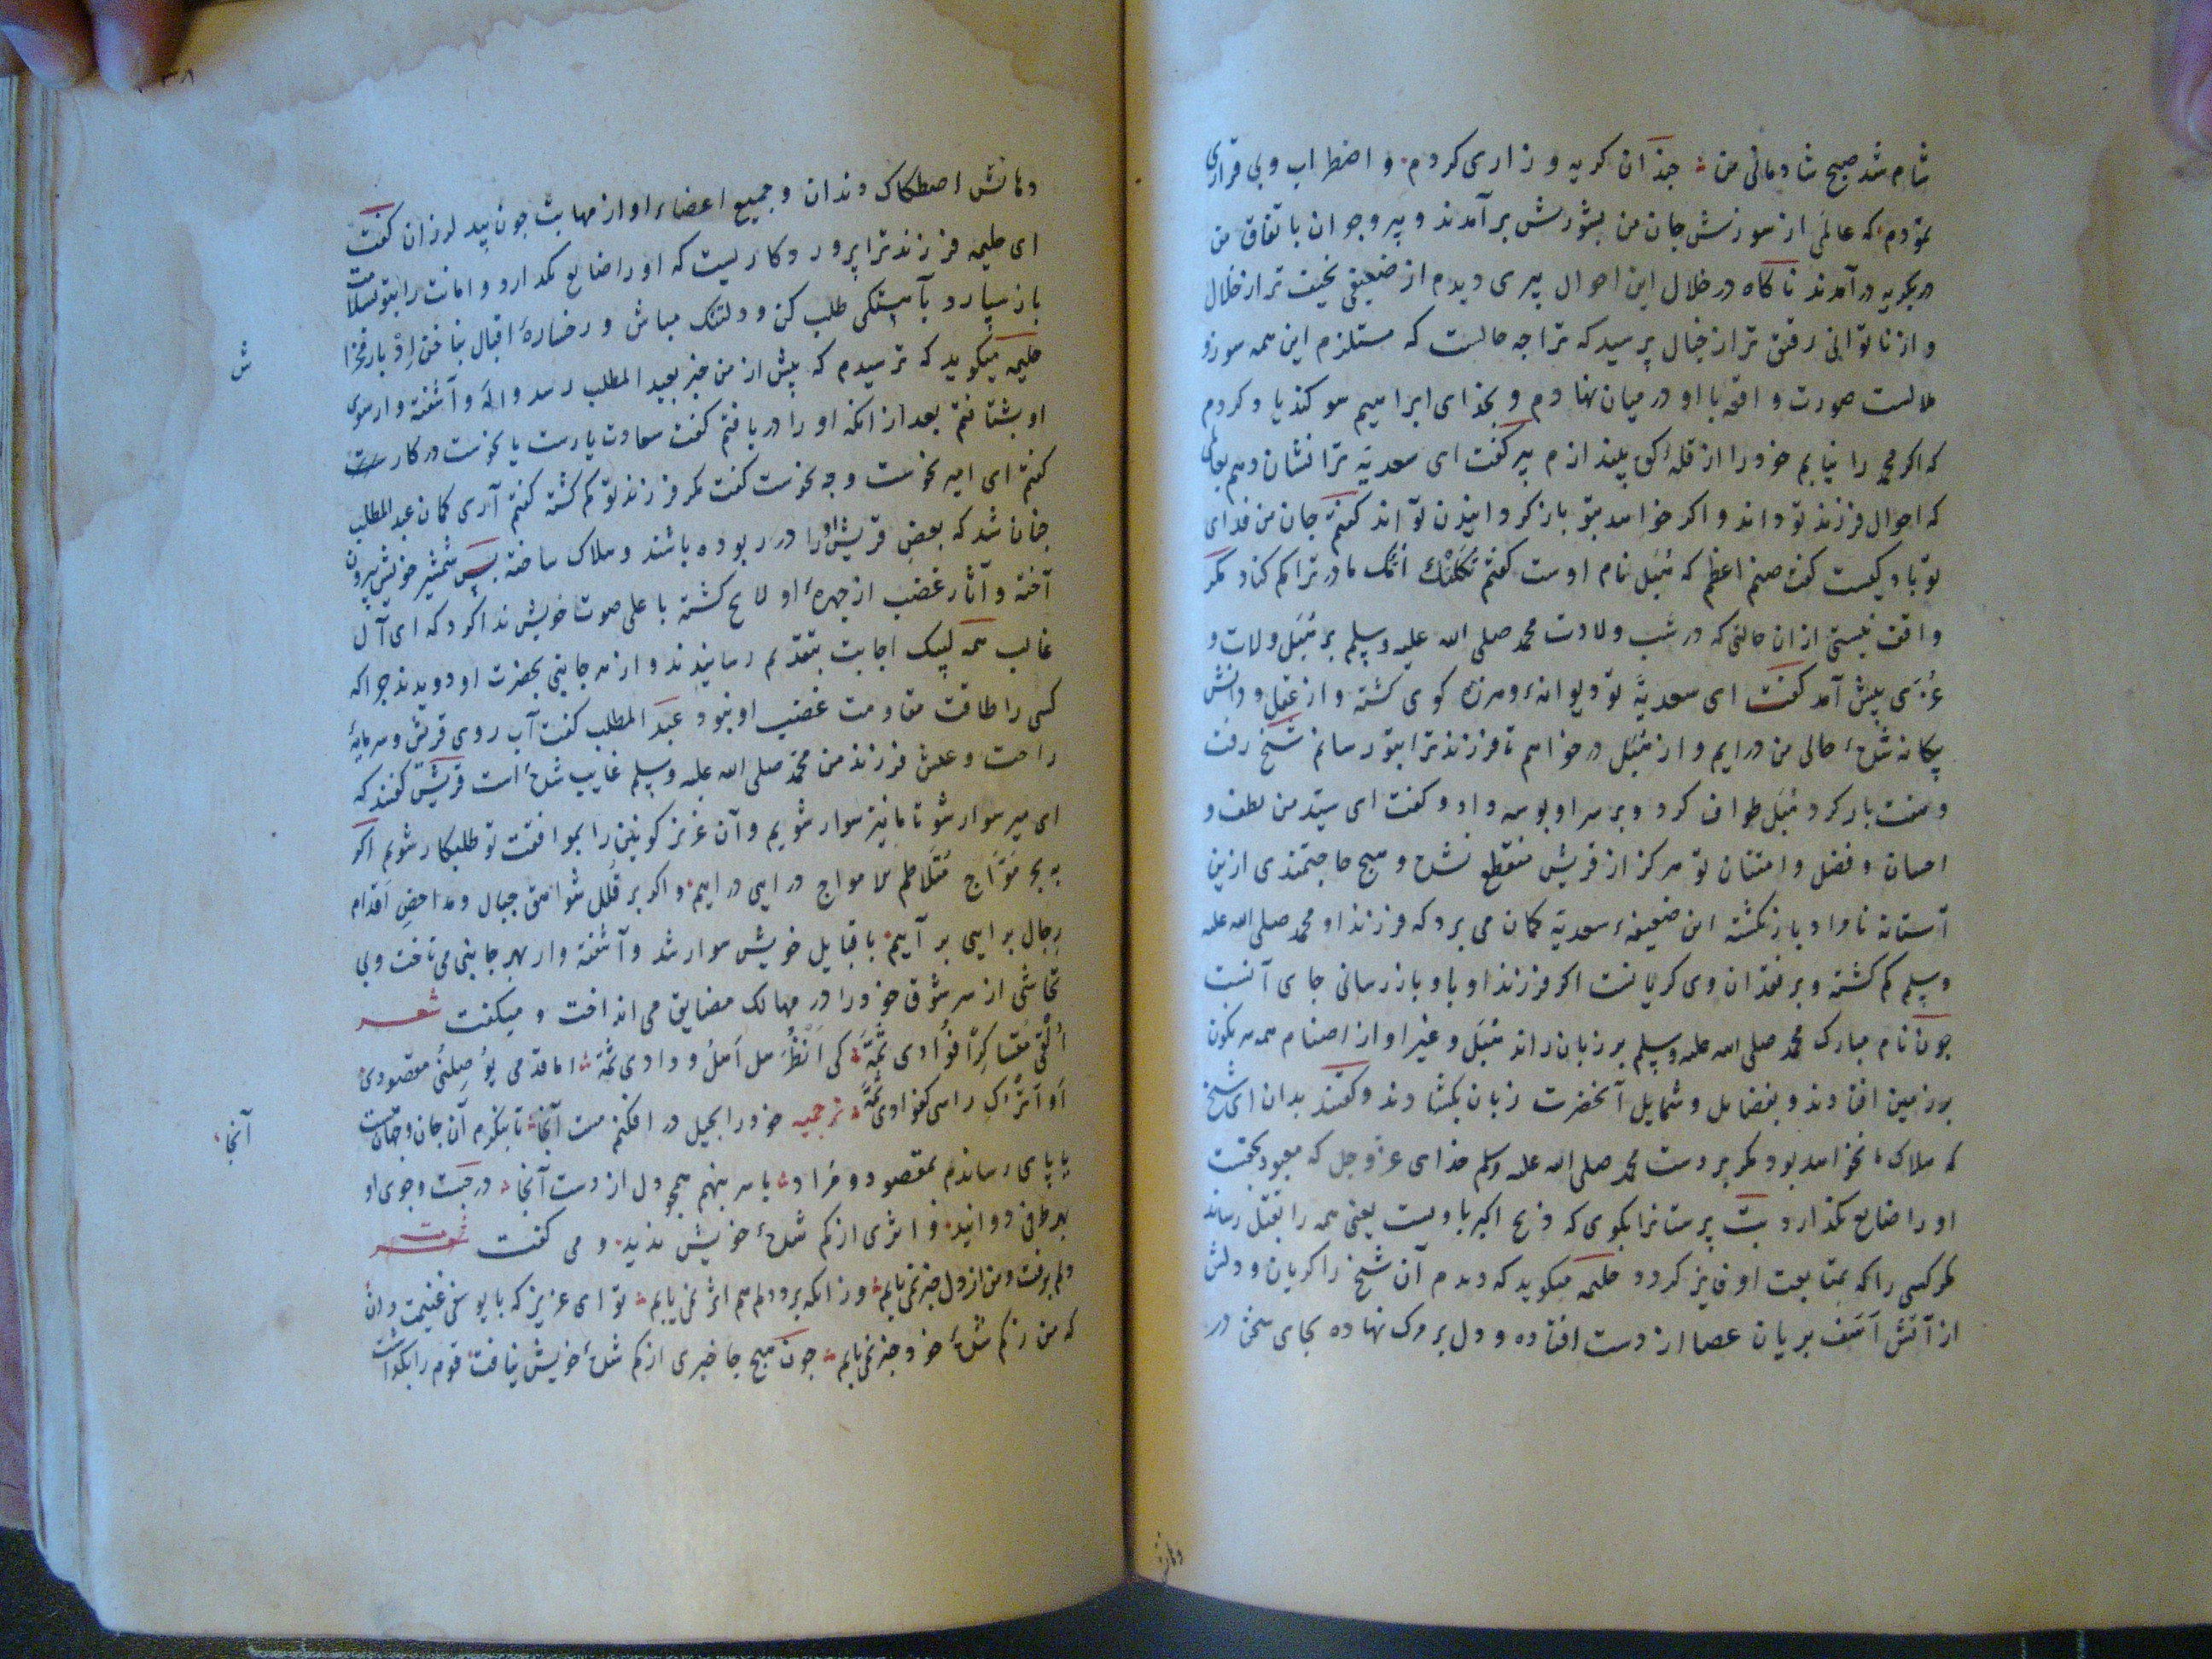 شام شد صبح شادمانی من جندان کریه و زاری کردم و اضطراب و بی قراری
نمودم که عالمی از سوزش جان من بشورش برآمدند و پیر و جوان باتفاق من
در کریه درآمدند ناکاه در خلال این احوال پیری دیدم از ضعیفی نحیف تر از خلال
و از ناتوانی دقیق تر از خیال پرسید که ترا جه حالست که مستلزم این همه سوز و
ملالست صورت واقعه با او در میان نهادم و بخدای ابراهیم سوکند یاد کردم
که اکر محمد را نیابم خود را از قله کوه بیندازم پیر کفت ای سعدیه ترا نشان دهم بعالمی
که احوال فرزند تو داند و اکر خواهد بتو باز کردانیدن تواند کفتم جان من فدای
تو باد کیست کفت صنم اعظم که هبل نام اوست کفتم ثکلتک امک مادر ترا کم کناد مکر
واقف نیستی از ان حالتی که در شب ولادت محمد صلی الله علیه وسلم بر هبل و لات و
عزی پیش آمد کفت ای سعدیه تو دیوانه و هرزه کوی کشته و از عقل و دانش
بیکانه شدهٔ حالی من درایم و از هبل درخواهم تا فرزند ترا بتو رساند شیخ رفت
و هفت بار کرد هبل طواف کرد و بر سر او بوسه داد و کفت ای سید من لطف و
احسان و فضل و امتنان تو هرکز از قریش منقطع نشده و هیج حاجتمندی ازین
آستانه نامراد باز نکشته این ضعیفهٔ سعدیه کمان می برد که فرزند او محمد صلی الله علیه
وسلم کم کشته و بر فقدان وی کریانست اکر فرزند او باو باز رسانی جای آنست
جون نام مبارک محمد صلی الله علیه وسلم بر زبان راند هبل و غیر او از اصنام همه سرنکون
بر زمین افتادند و بفضایل و شمایل آنحضرت زبان بکشادند و کفتند بدان ای شیخ
که هلاک ما نخواهد بود مکر بر دست محمد صلی الله علیه وسلم خدای عز و جل که معبود بحقست
او را ضایع نکذارد بت پرستانرا بکوی که ذبح اکبر با ویست یعنی همه را بقتل رساند
مکر کسی را که بمتابعت او فایز کردد حلیمه میکوید که دیدم آن شیخ را کریان و دلش
از آتش اسف بریان عصا از دست افتاده و دل بر مرک نهاده بجای سخن در
دهانش
دهانش اصطکاک دندان و جمیع اعضاء او از مهابت جون بید لرزان کفت
ای حلیمه فرزند ترا پروردکاریست که او را ضایع نکذارد و امانت را بتو بسلامت
باز سپارد بآهستکی طلب کن و دلتنک مباش و رخسارهٔ اقبال بناخن ادبار مخراش
حلیمه میکوید که ترسیدم که پیش از من خبر بعبد المطلب رسد واله و آشفته وار سوی
ش
او بشتافتم بعد از انکه او را دریافتم کفت سعادت یارست یا نحوست در کارست
کفتم ای امیر نحوست و جه نحوست کفت مکر فرزند تو کم کشته کفتم آری کمان عبد المطلب
جنان شد که بعض قریش او را در ربوده باشند و هلاک ساخته پس شمشیر خویش بیرون
آخته و آثار غضب از جهرهٔ او لایح کشته باعلی صوت خویش ندا کرد که ای آل
غالب همه لبیک اجابت بتقدیم رسانیدند و از هر جانبی بحضرت او دویدند جرا که
کسی را طاقت مقاومت غضب او نبود عبد المطلب کفت آب روی قریش و سرمایهٔ
راحت و عیش فرزند من محمد صلی الله علیه وسلم غایب شدهٔ است قریش کفتند که
ای میر سوار شو تا ما نیز سوار شویم و آن عزیز کونین را بموافقت تو طلبکار شویم اکر
به بحر مواج متلاطم الامواج درایی دراییم و اکر بر قلل شواهق جبال و مداحض اقدام
رجال برایی بر آییم با قبایل خویش سوار شد و آشفته وار بهر جانبی می تاخت و بی
تحاشی از سر شوق خود را در مهالک مضایق می انداخت و میکفت شعر
القی متنا کرا فؤادی ثمة کی انظر هل امل ودادی ثمة اما قدمی یوصلنی مقصودی
او اترک راسی کفؤادی ثمة ترجمه خود را بحیل در افکنم مست آنجا تا بنکرم آن جان و جهان هست
آنجا
یا پای رساندم بمقصود و مراد یا سر بنهم همجو دل از دست آنجا در جست و جوی او
بهر طرفی دوانید و اثری از کم شدهٔ خویش ندید و می کفت شعر
دلم برفت و من از دل خبر نمی یابم و زانکه برد دلم هم اثر نمی یابم تو ای عزیز که با یوسفی غنیمت دان
که من ز کم شدهٔ خود خبر نمی یابم جون هیج جا خبری از کم شدهٔ خویش نیافت قوم را بکذاشت